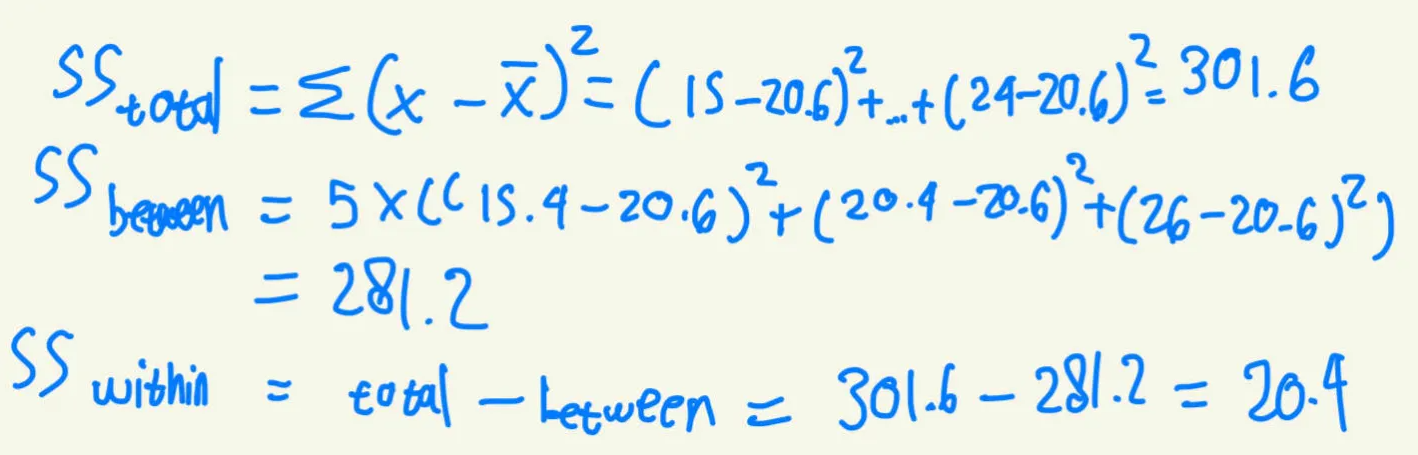 SS total = Σ(x − x̄)² = (15−20.6)²+...+(24−20.6)² = 301.6
SS between = 5×((15.4−20.6)²+(20.4−20.6)²+(26−20.6)²)
= 281.2
SS within = total − between = 301.6 − 281.2 = 20.4